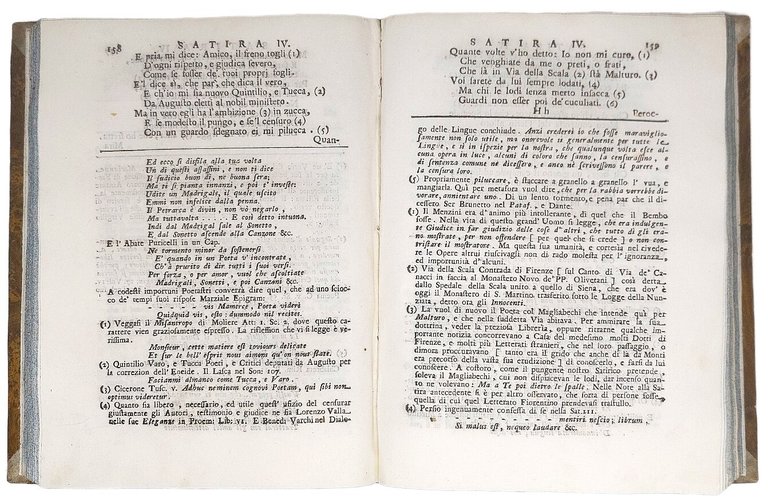 158
SATIRA IV.
E pria mi dice: Amico, il freno togli (1)
D'ogni rispetto, e giudica severo,
Come se fosser de' tuoi propri fogli.
E'l dice sì, che par, che dica il vero,
E ch'io mi sia nuovo Quintilio, e Tucca, (2)
Da Augusto eletti al nobil ministero.
Ma in vero egli ha l'ambizione (3) in zucca,
E se modesto il pungo, e se'l censuro (4)
Con un guardo sdegnato ei mi pilucca. (5)
Quan-
Ed ecco si disfila alla tua volta
Un di questi assassini, e non ti dice
Il sudicio buon dì, ne buona sera;
Ma ti si pianta innanzi, e poi t'investe:
Udite un Madrigale, il quale uscito
Emmi non isfelice dalla penna.
Il Petrarca è divin, non vò negarlo,
Ma tuttavolta . . . . E così detto intuona.
Indi dal Madrigal sale al Sonetto,
E dal Sonetto ascende alla Canzone &c.
E l' Abate Puricelli in un Cap.
Ne tormento minor da sostenersi
E' quando in un Poeta v'incontrate,
Ch'à prurito di dir tutti i suoi versi.
Per forza, o per amor, vuol che ascoltiate
Madrigali, Sonetti, e poi Canzoni &c.
A codesti importuni Poetastri converrà dire quel, che ad uno scioc-
co de' tempi suoi rispose Marziale Epigram:
- - - - - - vis Mamerce, Poeta videri
Quidquid vis, esto: dummodo nil recites.
(1) Veggasi il Misantropo di Moliere Att: 1. Sc: 2. dove questo carat-
tere vien graziosamente espresso. La riflession che vi si legge è ve-
rissima.
Monsieur, cette matiere est toviours delicate
Et sur le bell' esprit nous aimons qu'on nous flate.
(2) Quintilio Varo, e Tucca Poeti, e Critici deputati da Augusto per
la correzion dell' Eneide. Il Lalca nel Son: 107.
Faciannsi almanco come Tucca, e Varo.
(3) Cicerone Tusc. V. Adhuc neminem cognovi Poetam, qui sibi non
optimus videretur.
(4) Quanto sia libero, necessario, ed utile quest' ufizio del censurar
giustamente gli Autori, testimonio e giudice ne sia Lorenzo Valla
nelle sue Eleganze in Proem: Lib: VI. E Bened: Varchi nel Dialo-
SATIRA IV.
159
Quante volte v'ho detto: Io non mi curo, (1)
Che venghiate da me o preti, o frati,
Che sià in Via della Scala (2) stà Malturo. (3)
Voi sarete da lui sempre lodati, (4)
Ma chi le lodi senza merto insacca (5)
Guardi non esser poi de'cuculiati. (6)
H h
Peroc-
go delle Lingue conchiude. Anzi crederei io che fosse maraviglio-
samente non solo utile, ma onorevole sì generalmente per tutte le
Lingue, e sì in ispezie per la nostra, che qualunque volta esce al-
cuna opera in luce, alcuni di coloro che sanno, la censurassino, e
di sentenza comune ne dicessero, e anco ne scrivessono il parere, e
la censura loro.
(5) Propriamente piluccare, è staccare a granello a granello l' uva, e
mangiarla. Quì per metafora vuol dire, che per la rabbia vorrebbe di-
vorare, annientare uno. Di un lento tormento, e pena par che il di-
cessero Ser Brunetto nel Pataf. e Dante.
(1) Il Menzini era d'animo più intollerante, di quel che il Bembo
fosse. Nella vita di questo grand' Uomo si legge, che era indulgen-
te Giudice in far giudizio delle cose d'altri, che tutto dì gli era-
no mostrate, per non offendere [ per quel che si crede ] o non con-
tristare il mostratore. Ma questa sua umanità, e cortesia nel rivede-
re le Opere altrui riuscivagli non di rado molesta per l'ignoranza,
ed importunità d'alcuni.
(2) Via della Scala Contrada di Firenze [ sul Canto di Via de' Ca-
nacci in faccia al Monastero Novo de' PP. Olivetani ] così detta
dallo Spedale della Scala unito a quello di Siena, che era dov'
oggi il Monastero di S. Martino, trasferito sotto le Logge della Nun-
ziata, detto ora gli Innocenti.
(3) La vuol di nuovo il Poeta col Magliabechi che intende quì per
Malturo, e che nella suddetta Via abitava. Per ammirare la sua
dottrina, veder la preziosa Librerìa, oppure ritrarne qualche im-
portante notizia concorrevano a Casa del medesimo molti Dotti di
Firenze, e molti più Letterati stranieri, che nel loro passaggio, o
dimora procuravano [ tanto era il grido che anche di là da Monti
era precorso della vasta sua erudizione ] di conoscere, e farsi da lui
conoscere. A costoro, come il pungente nostro Satirico pretende,
soleva il Magliabechi, cui non dispiacevan le lodi, dar incenso quan-
to ne volevano: Ma a Te poi dietro le spalle. Nelle Note alla Sa-
tira antecedente si è per altro osservato, che forza di persone fosse
quella di cui quel Letterato Fiorentino prendevasi trastullo.
(4) Persio ingenuamente confessa di se nella Sat. III.
- - - - - - - - - - mentiri nescio; librum,
Si malus est, nequeo laudare &c.